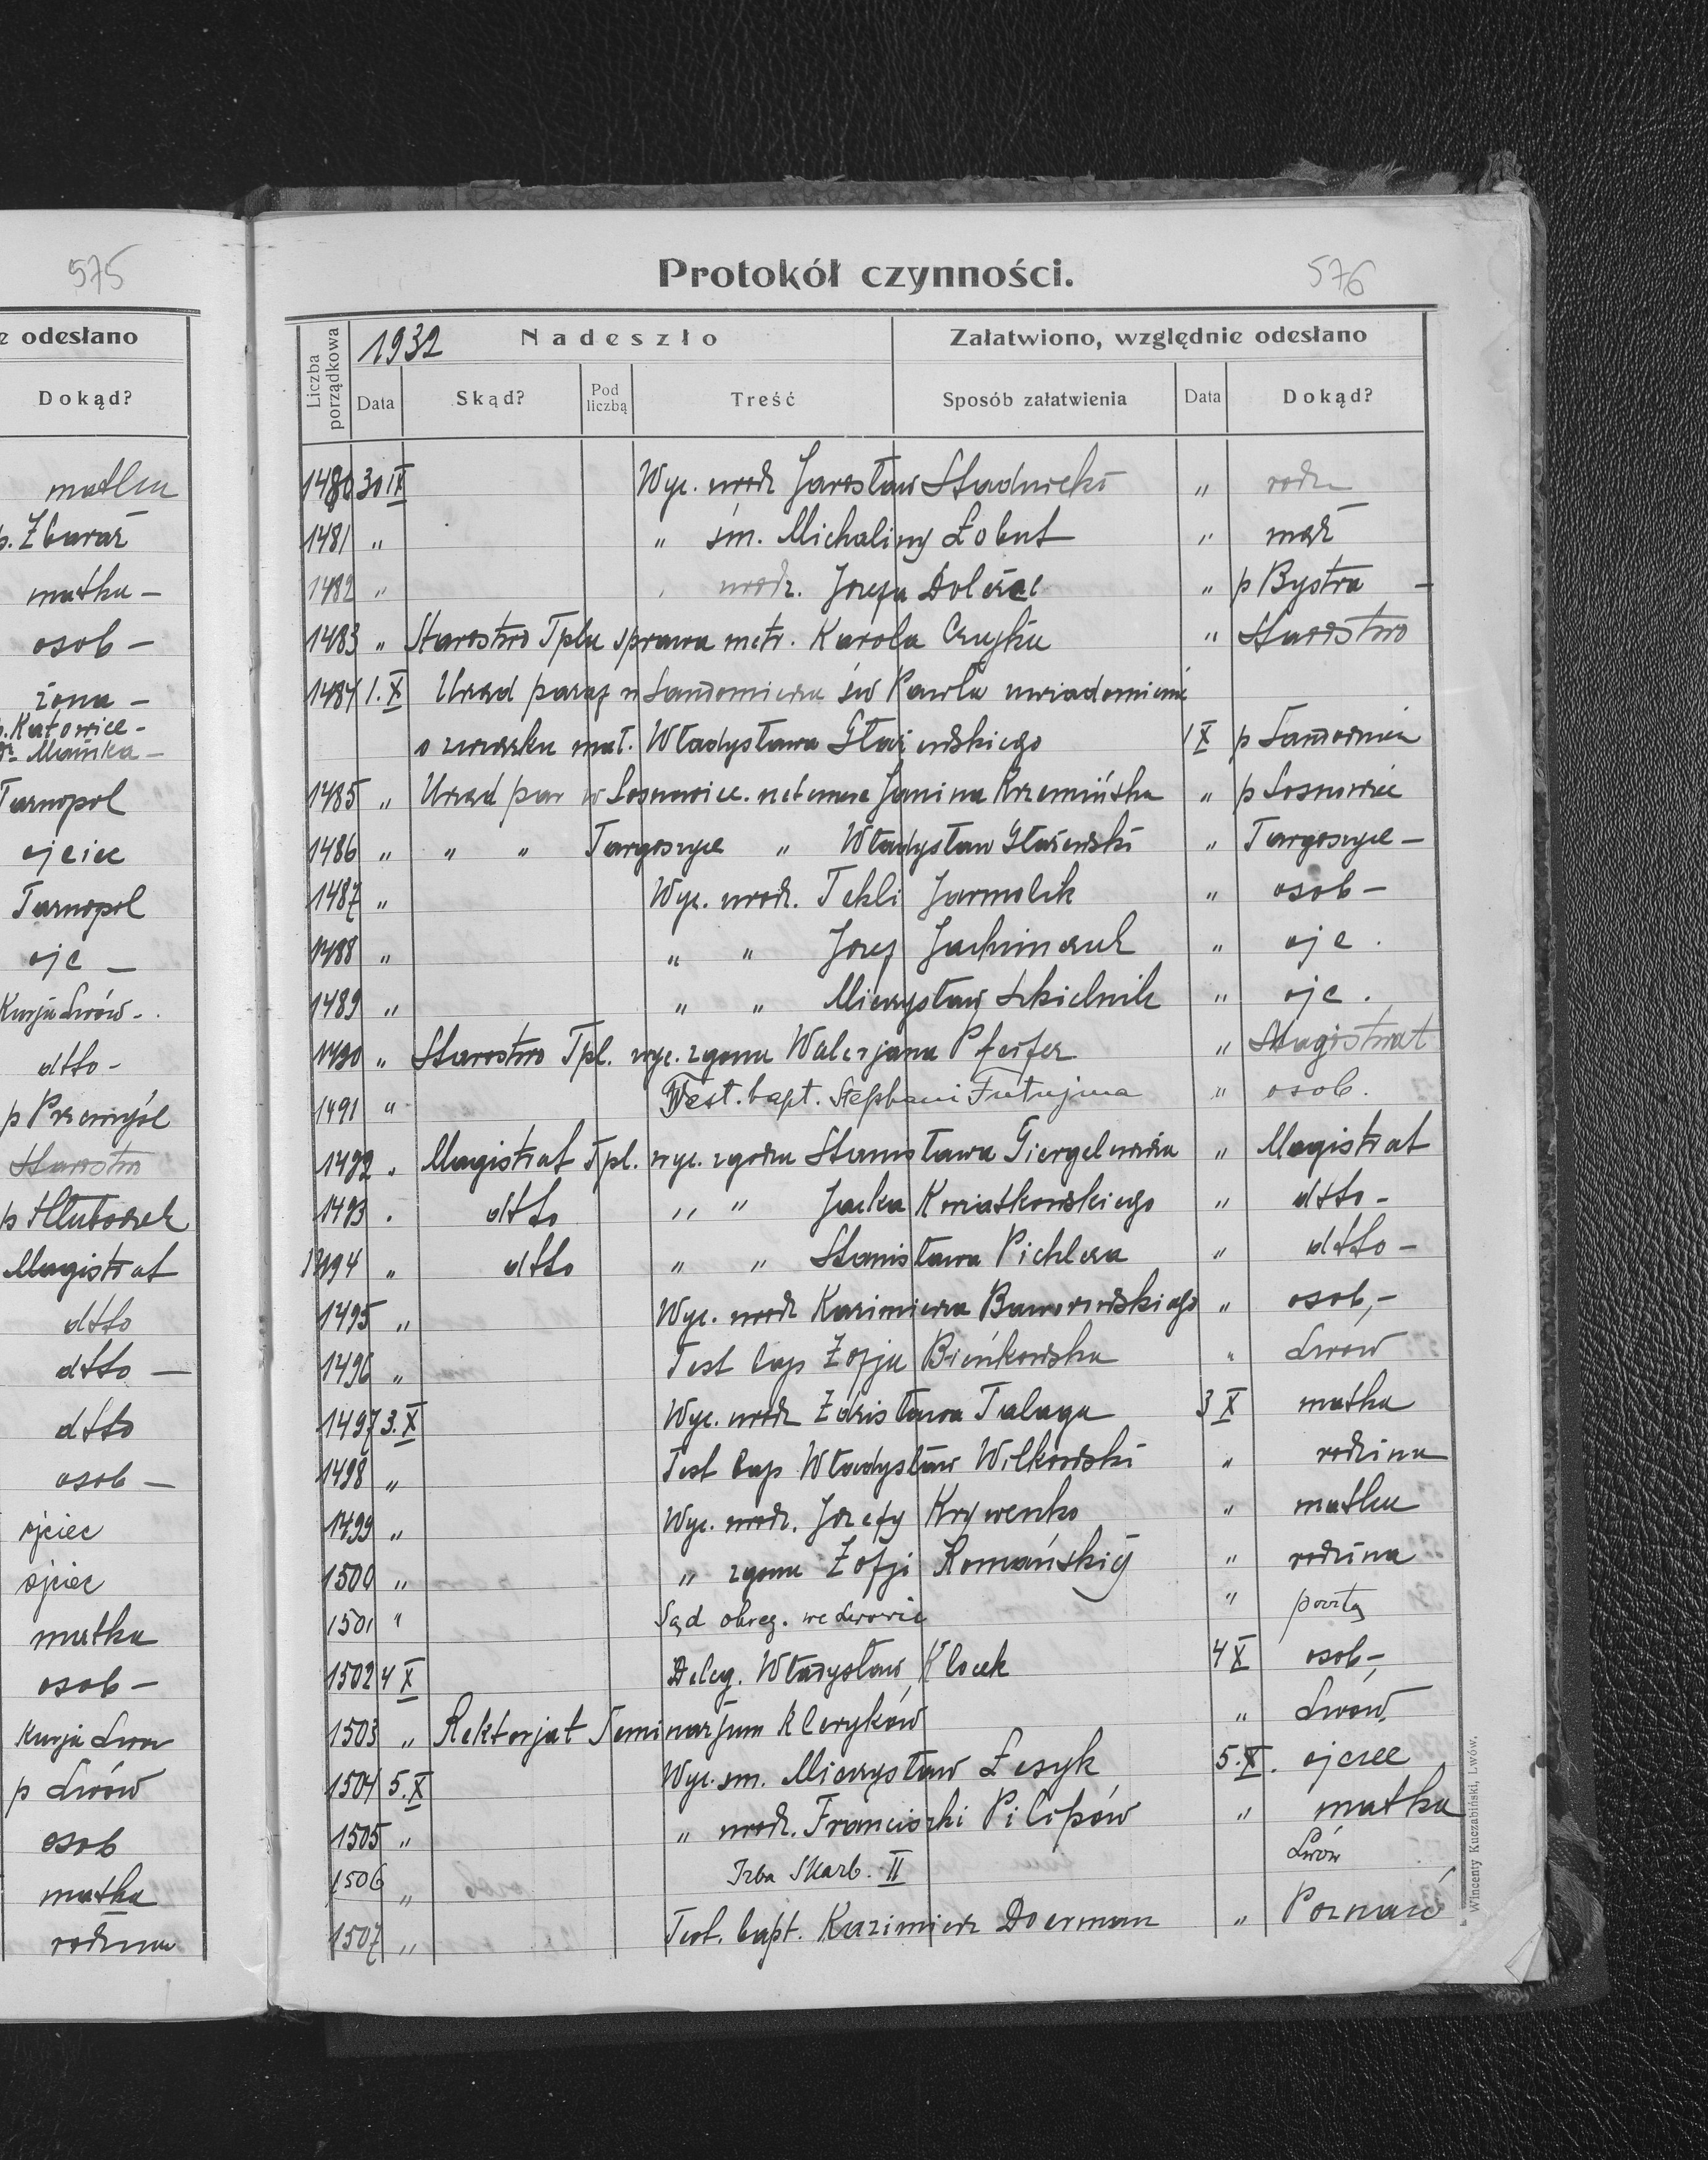 575
e odesłano
Dokąd?
matka
p. Zbaraż
matka -
osob -
żona -
p. Katowice -
Tarnopol
ojciec
Tarnopol
ojc -
Kurja Lwów -
dtto -
p Przemyśl
Starostwo
Magistrat
dtto
dtto -
dtto
osob -
ojciec
ojciec
matka
osob -
Kurja Lwów
p Lwów
osob
matka
rodzina
Protokół czynności.
576
Liczba porządkowa
1932
Nadeszło
Załatwiono, względnie odesłano
Data Skąd? Pod liczbą Treść Sposób załatwienia Data Dokąd?
1480 30 IX Wyc. urodz Jarosław Stadnicki " rodz
1481 " " śm. Michaliny Łobut " mąż
1482 " urodz. Józefa " p Bystra -
1483 " Starostwo Tplu sprawa metr. Karola Czujku " Starostwo
1484 1.X Urząd paraf w Sandomierzu św Pawła uwiadomienie
o związku mał. Władysława 1 X p Sandomierz
1485 " Urząd par w Sosnowiec. Janina Krzemińska " p Sosnowiec
1486 " " " Targoszyce " Władysław " Targoszyce -
1487 " Wyc. urodz. Tekli Jarmolik " osob -
1488 " " " Józef Jachimczuk " ojc.
1489 " " " Mieczysław Szkielnik " ojc.
1490 " Starostwo Tpl. wyc. zgonu Walerjana Pfeifer " Magistrat
1491 " Test. bapt. Stephani Futujma " osob.
1492 " Magistrat Tpl. wyc. zgonu Stanisława Giergelewicza " Magistrat
1493 . dtto " " Jacka Kwiatkowskiego " dtto -
1494 " dtto " " Stanisława Pichlera " dtto -
1495 " Wyc. urodz Kazimierza Baworowskiego " osob, -
1496 " Test bap Zofja Bieńkowska " Lwów
1497 3.X Wyc. urodz Zdzisława Talaga 3 X matka
1498 " Test bap Władysław Wilkowski " rodzina
1499 " Wyc. urodz. Józefy Krywenko " matka
1500 " " zgonu Zofji Romańskiej " rodzina
1501 " Sąd okręg. we Lwowie " poczta
1502 4 X Deleg. Władysław Klocek 4 X osob -
1503 " Rektorjat Seminarjum kleryków " Lwów
1504 5.X Wyc. śm. Mieczysław Łesyk 5.X. ojciec
1505 " " urodz. Franciszki Pilipów " matka
1506 " Izba Skarb. II Lwów
1507 " Test. bapt. Kazimierz Doerman " Poznań
Wincenty Kuczabiński, Lwów.